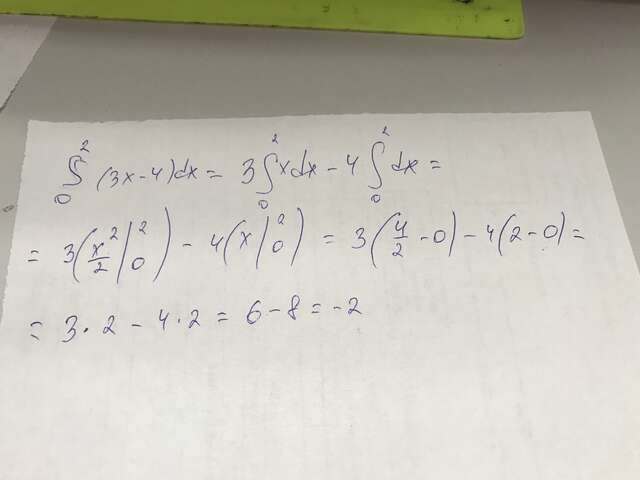 ∫₀² (3x-4)dx = 3∫₀² xdx - 4∫₀² dx =
= 3(x²/2 |₀²) - 4(x|₀²) = 3(4/2 - 0) - 4(2-0) =
= 3·2 - 4·2 = 6 - 8 = -2